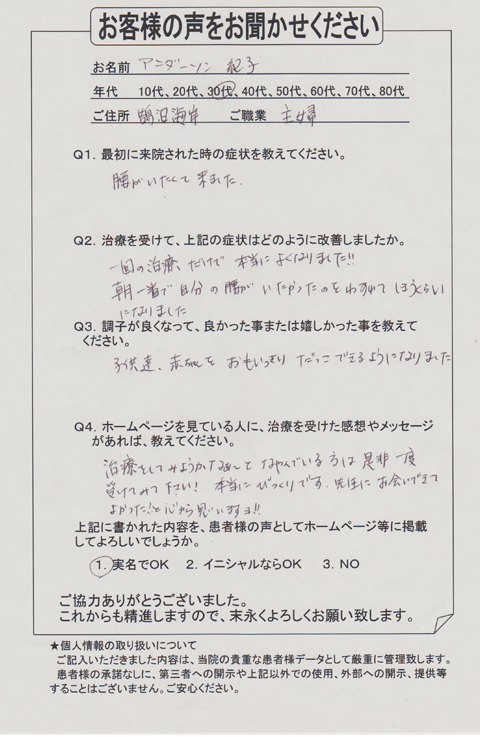 お客様の声をお聞かせください
お名前 アンダーソン 紀子
年代 10代、20代、30代、40代、50代、60代、70代、80代
ご住所 鵠沼海岸 ご職業 主婦
Q1. 最初に来院された時の症状を教えてください。
腰がいたくて来ました.
Q2. 治療を受けて、上記の症状はどのように改善しましたか。
一回の治療、だけで 本当に よくなりました!!
朝一番で自分の腰が いたかったのをわすれてしまうくらい
になりました
Q3. 調子が良くなって、良かった事または嬉しかった事を教えて
ください。
子供達、赤ちゃんを おもいっきり だっこ できるようになりました
Q4. ホームページを見ている人に、治療を受けた感想やメッセージ
があれば、教えてください。
治療をしてみようかなぁんて なやんでいる 方は 是非 一度
受けてみて下さい! 本当にびっくりです. 先生に お会いできて
よかった!と心から思いますョ!!
上記に書かれた内容を、患者様の声としてホームページ等に掲載
してよろしいでしょうか。
1. 実名でOK 2. イニシャルならOK 3. NO
ご協力ありがとうございました。
これからも精進しますので、末永くよろしくお願い致します。
★個人情報の取り扱いについて
ご記入いただきました内容は、当院の貴重な患者様データとして厳重に管理致します。
患者様の承諾なしに、第三者への開示や上記以外での使用、外部への開示、提供等
することはございません。ご安心ください。